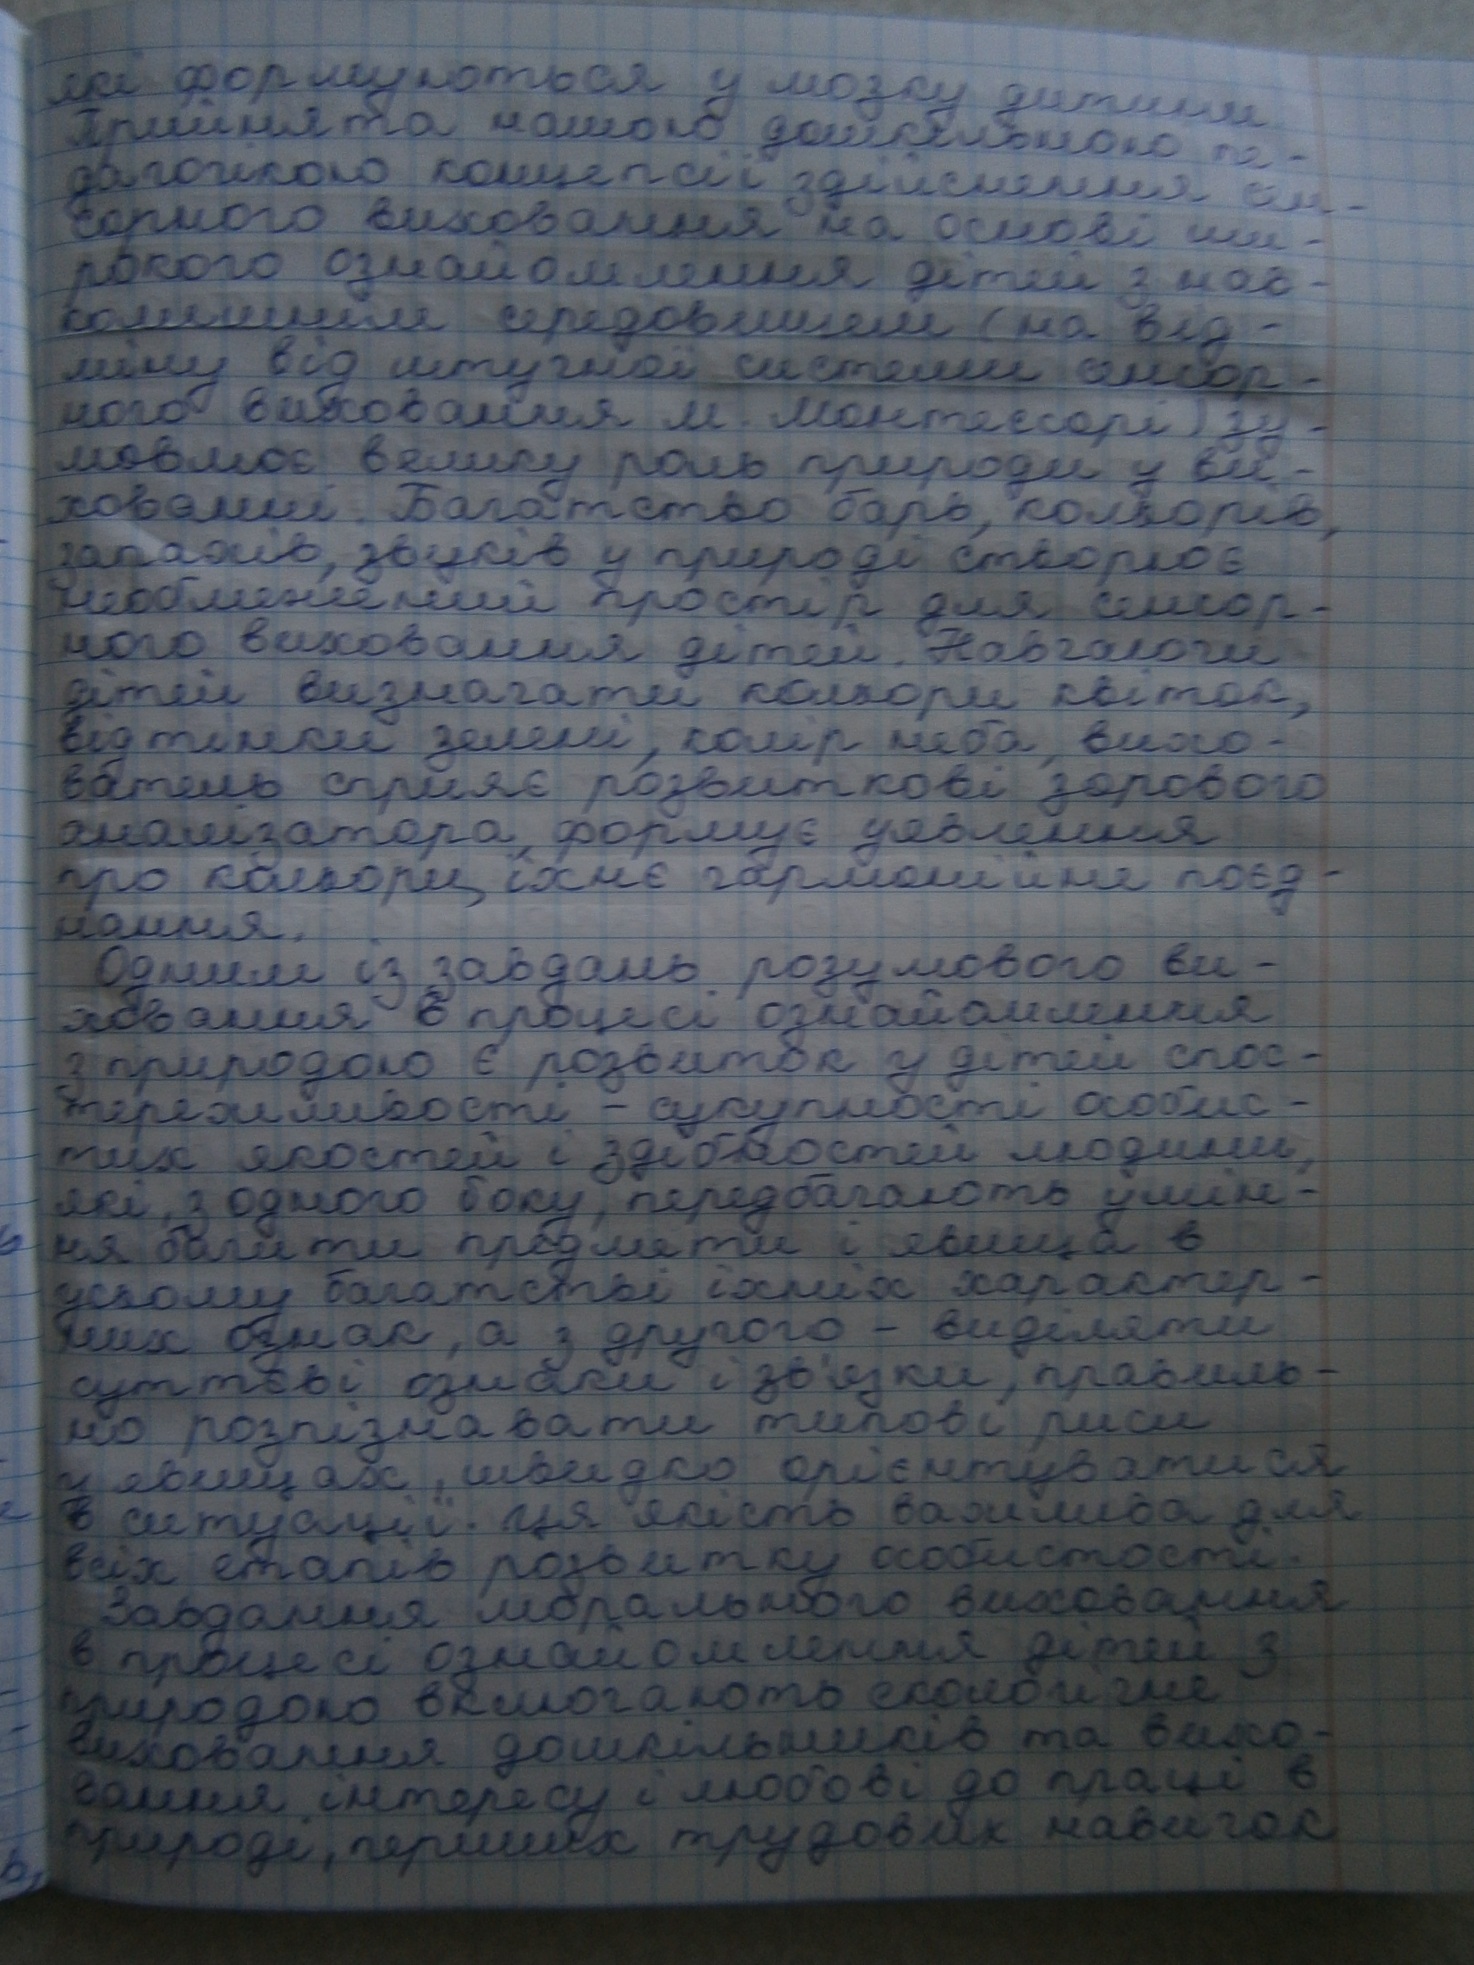 які формуються у мозку дитини.
Прийнята нашою дошкільною пе-
дагогікою концепсії здійснення сен-
сорного виховання на основі ши-
рокого ознайомлення дітей з нав-
колишнім середовищем (на від-
міну від штучної системи сенсор-
ного виховання М. Монтессорі) зу-
мовлює велику роль природи у ви-
хованні. Багатство барв, кольорів,
запахів, звуків у природі створює
необмежений простір для сенсор-
ного виховання дітей. Навчаючи
дітей визначати кольори квіток,
відтінки зелені, колір неба, вихо-
ватель сприяє розвиткові зорового
аналізатора, формує уявлення
про кольори, їхнє гармонійне поєд-
нання.
Одним із завдань розумового ви-
ховання в процесі ознайомлення
з природою є розвиток у дітей спос-
тережливості – сукупності особис-
тих якостей і здібностей людини,
які, з одного боку, передбачають умін-
ня бачити предмети і явища в
усьому багатстві їхніх характер-
них ознак, а з другого – виділяти
суттєві ознаки і зв'язки, правиль-
но розпізнавати типові риси
у явищах, швидко орієнтуватися
в ситуації. Ця якість важлива для
всіх етапів розвитку особистості.
Завдання морального виховання
в процесі ознайомлення дітей з
природою включають екологічне
виховання дошкільників та вихо-
вання інтересу і любові до праці в
природі, перших трудових навичок